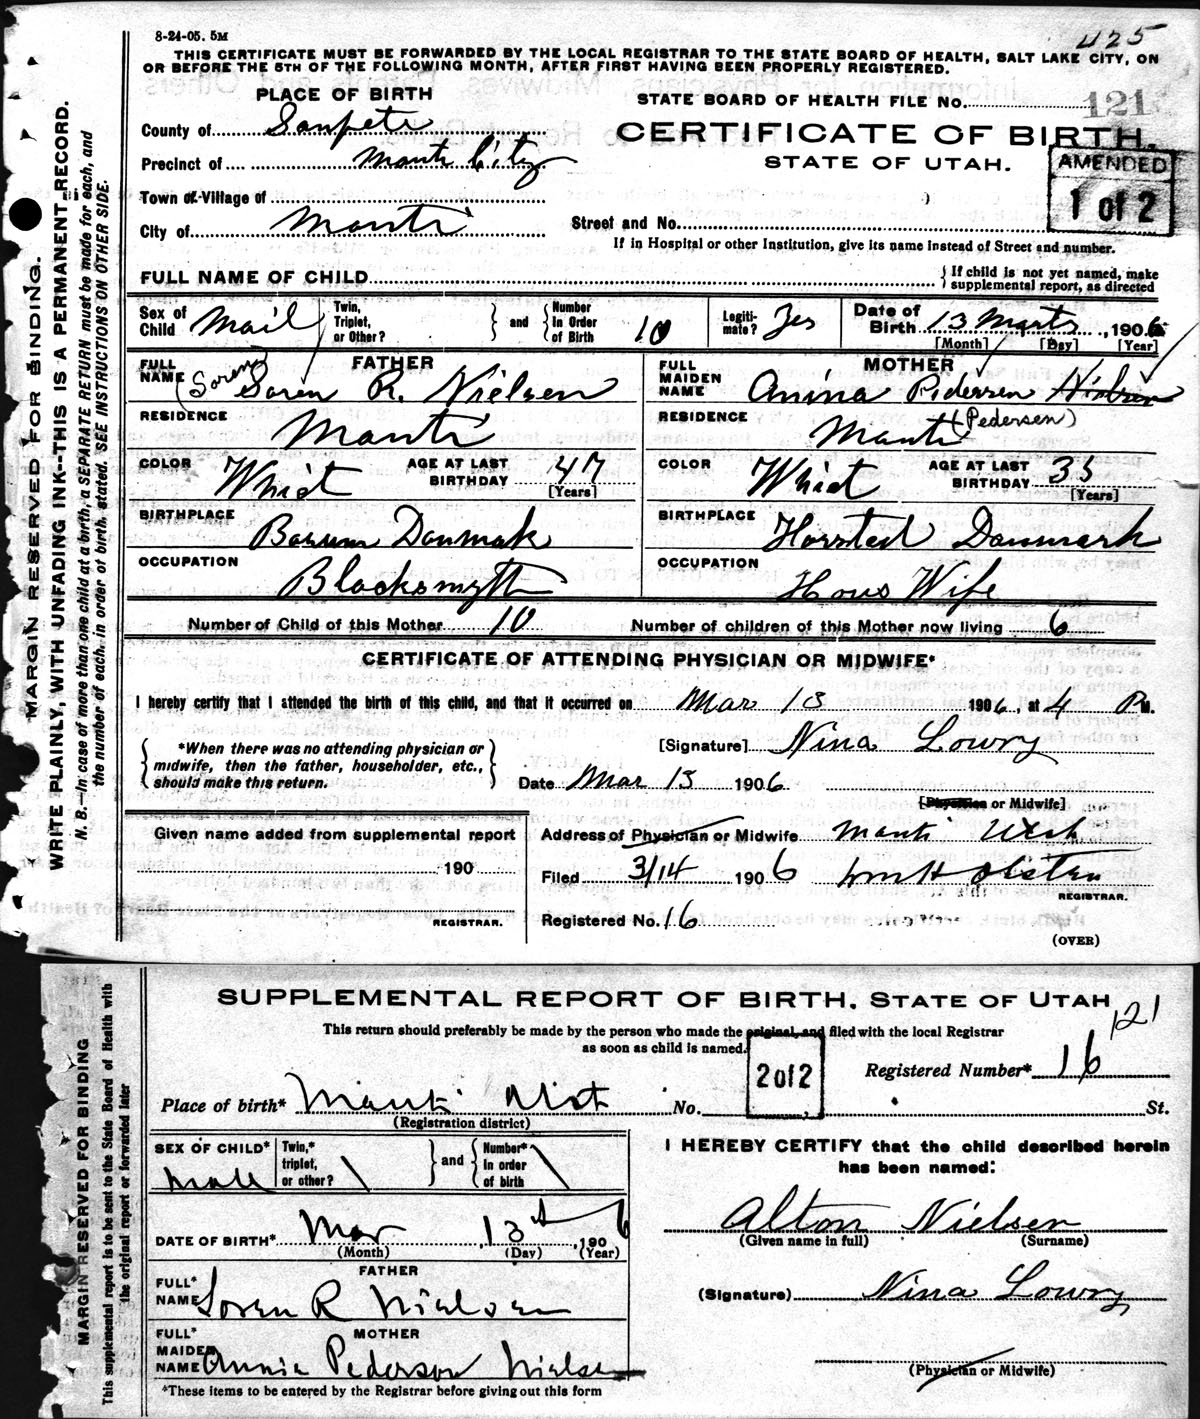 8-24-05. 5M
425
THIS CERTIFICATE MUST BE FORWARDED BY THE LOCAL REGISTRAR TO THE STATE BOARD OF HEALTH, SALT LAKE CITY, ON
OR BEFORE THE 5TH OF THE FOLLOWING MONTH, AFTER FIRST HAVING BEEN PROPERLY REGISTERED.
PLACE OF BIRTH
STATE BOARD OF HEALTH FILE No. 121
County of Sanpete
CERTIFICATE OF BIRTH.
Precinct of Manti City
STATE OF UTAH.
AMENDED
1 of 2
Town or Village of
City of Manti
Street and No.
If in Hospital or other Institution, give its name instead of Street and number.
FULL NAME OF CHILD
If child is not yet named, make
supplemental report, as directed
Sex of Child Mail
Twin, Triplet, or Other?
and
Number In Order of Birth 10
Legitimate? Yes
Date of Birth 13 Marts, 1906
[Month] [Day] [Year]
FATHER
FULL NAME (Soren) Soren R. Nielsen
MOTHER
FULL MAIDEN NAME Anina Pidersen Nielsen
(Pedersen)
RESIDENCE Manti
RESIDENCE Manti
COLOR Whict
AGE AT LAST BIRTHDAY 47
[Years]
COLOR Whict
AGE AT LAST BIRTHDAY 35
[Years]
BIRTHPLACE Barum Danmak
BIRTHPLACE Horsted Danmark
OCCUPATION Blacksmyth
OCCUPATION Hous Wife
Number of Child of this Mother 10
Number of children of this Mother now living 6
CERTIFICATE OF ATTENDING PHYSICIAN OR MIDWIFE*
I hereby certify that I attended the birth of this child, and that it occurred on Mar 13 1906, at 4 P M.
*When there was no attending physician or
midwife, then the father, householder, etc.,
should make this return.
[Signature] Nina Lowry
Date Mar 13 1906
[Physician or Midwife]
Given name added from supplemental report
190
REGISTRAR.
Address of Physician or Midwife Manti Utah
Filed 3/14 1906
REGISTRAR.
Registered No. 16
(OVER)
MARGIN RESERVED FOR BINDING.
WRITE PLAINLY, WITH UNFADING INK--THIS IS A PERMANENT RECORD.
N. B.—In case of more than one child at a birth, a SEPARATE RETURN must be made for each, and
the number of each, in order of birth, stated. SEE INSTRUCTIONS ON OTHER SIDE.
SUPPLEMENTAL REPORT OF BIRTH, STATE OF UTAH
121
This return should preferably be made by the person who made the original, and filed with the local Registrar
as soon as child is named.
2 of 2
Registered Number* 16
Place of birth* Manti No. St.
(Registration district)
SEX OF CHILD* Male
Twin,* triplet, or other?
and
Number* in order of birth
DATE OF BIRTH* Mar, 13, 1906
(Month) (Day) (Year)
FATHER
FULL* NAME Soren R Nielsen
MOTHER
FULL* MAIDEN NAME Annie Pederson Nielsen
*These items to be entered by the Registrar before giving out this form
I HEREBY CERTIFY that the child described herein
has been named:
Alton Nielsen
(Given name in full) (Surname)
(Signature) Nina Lowry
(Physician or Midwife)
MARGIN RESERVED FOR BINDING
This supplemental report is to be sent to the State Board of Health with
the original report or forwarded later